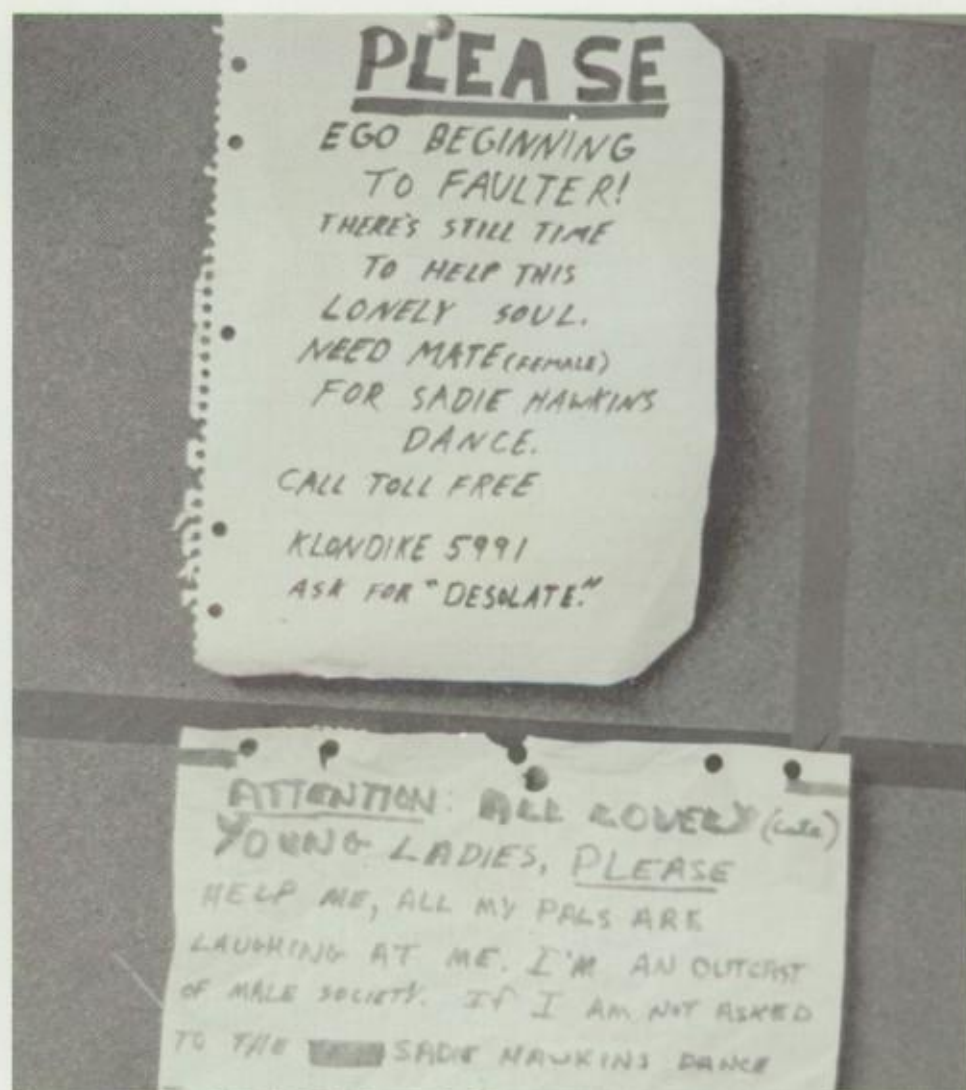 PLEASE
EGO BEGINNING
TO FAULTER!
THERE'S STILL TIME
TO HELP THIS
LONELY SOUL.
NEED MATE (FEMALE)
FOR SADIE HAWKINS
DANCE.
CALL TOLL FREE
KLONDIKE 5991
ASK FOR "DESOLATE."
ATTENTION: ALL LOVELY (cute)
YOUNG LADIES, PLEASE
HELP ME, ALL MY PALS ARE
LAUGHING AT ME. I'M AN OUTCAST
OF MALE SOCIETY. If I AM NOT ASKED
TO THE SADIE HAWKINS DANCE